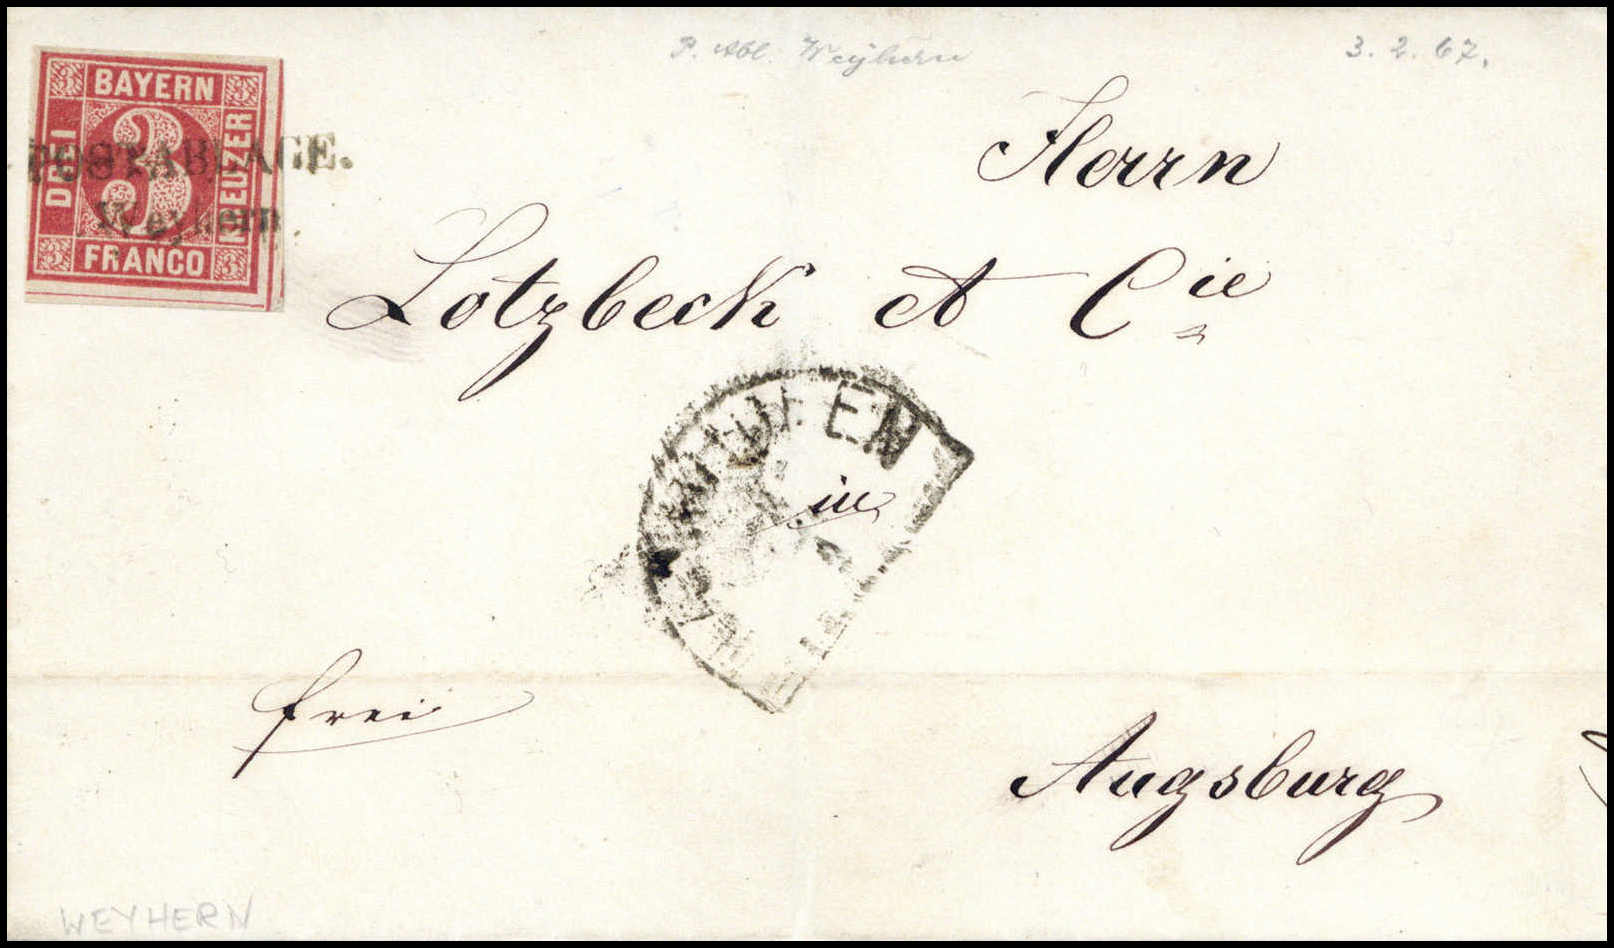 P. Abl. Weyhern 3. 2. 67.
3 BAYERN 3
DREI 3 KREUZER
3 FRANCO 3
POSTABLAGE.
Weyhern
Herrn
Lotzbeck et Cie
in
frei
Augsburg
WEYHERN